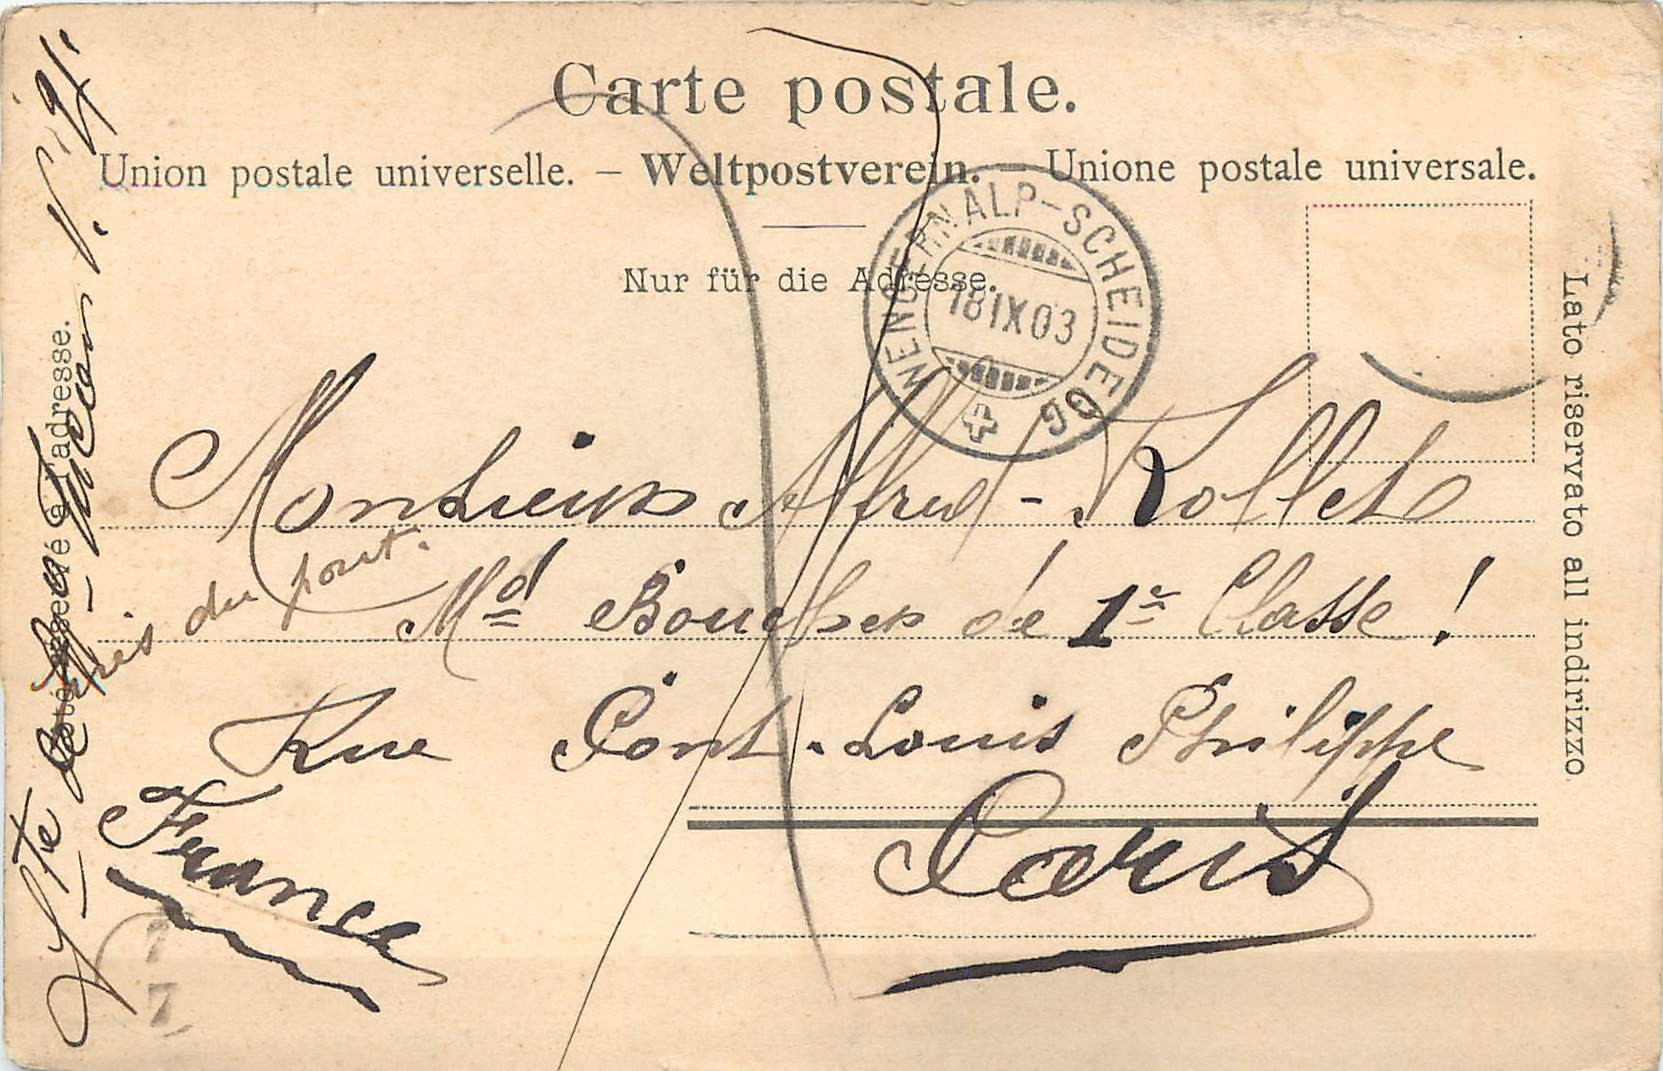 Carte postale.
Union postale universelle. – Weltpostverein. Unione postale universale.
Nur für die Adresse.
WENGERNALP-SCHEIDEGG
18 IX 03
Monsieur Alfred Rollet
Md Boucher de 1re Classe !
Rue Pont-Louis Philippe
Paris
France
près du pont.
l'adresse.
Lato riservato all indirizzo.
7
7